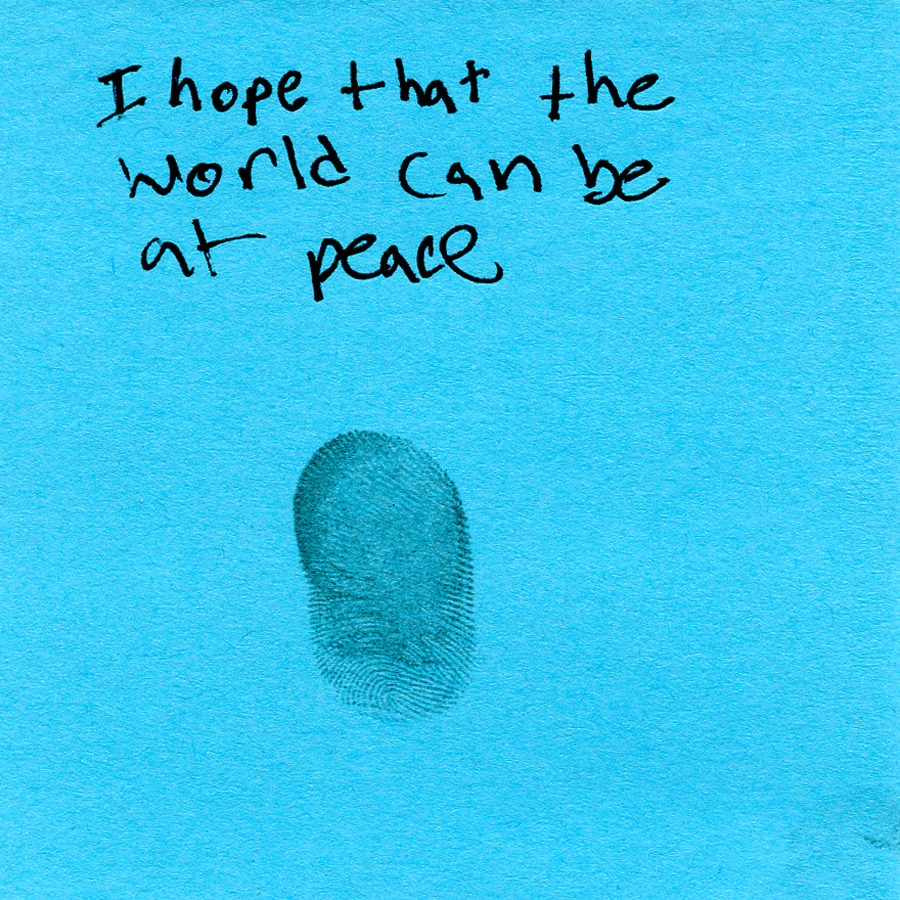 I hope that the
world can be
at peace